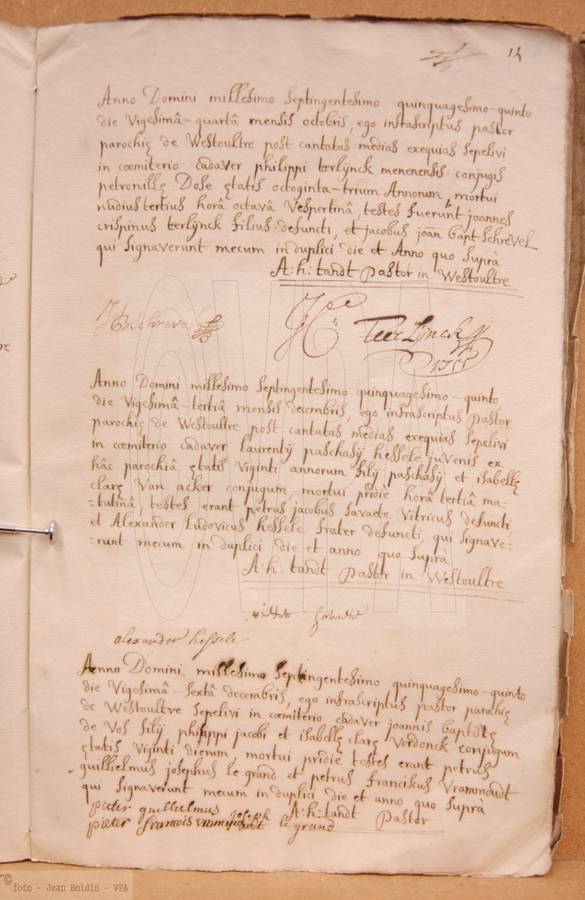 12
Anno Domini millesimo septingentesimo quinquagesimo-quinto
die vigesimâ-quartâ mensis octobris, ego infrascriptus pastor
parochię de Westoultre post cantatas medias exequias sepelivi
in cœmiterio cadaver philippi terlÿnck menenensis conjugis
petronillę Dose ętatis octoginta-trium Annorum, mortui
nudiustertius horâ octavâ Vespertinâ, testes fuerunt joannes
crispinus terlÿnck filius defuncti, et jacobus joan bapt schrevel
qui signaverunt mecum in duplici die et Anno quo suprà
A:h: tandt Pastor in Westoultre
TeerLÿnck
1755
Anno Domini millesimo septingentesimo quinquagesimo-quinto
die Vigesimâ-tertiâ mensis decembris, ego infrascriptus pastor
parochię de Westoultre post cantatas medias exequias sepelivi
in cœmiterio cadaver laurentij paschasij hessele juvenis ex
hâc parochiâ ętatis Viginti annorum filij paschasij et isabellę
clarę Van acker conjugum, mortui pridie horâ tertiâ ma-
=tutinâ, testes erant petrus jacobus savaete Vitricus defuncti,
et Alexander Ludovicus hessele frater defuncti, qui signave=
=runt mecum in duplici die et anno quo suprà
A:h: tandt Pastor in Westoultre
alexander hessele
Anno Domini millesimo septingentesimo quinquagesimo-quinto
die Vigesimâ-sextâ decembris, ego infrascriptus pastor parochię
de Westoultre sepelivi in cœmiterio cadaver joannis baptistę
de Vos filij philippi jacobi et isabellę clarę Verdonck conjugum
ętatis Viginti dierum, mortui pridie testes erant petrus
guilhelmus josephus le grand et petrus franciscus Vrammoudt
qui signaverunt mecum in duplici die et anno quo suprà
A:h: tandt Pastor
pieter guillelmus joseph legrand
pieter francois
© foto - Jean Boidin - VPA